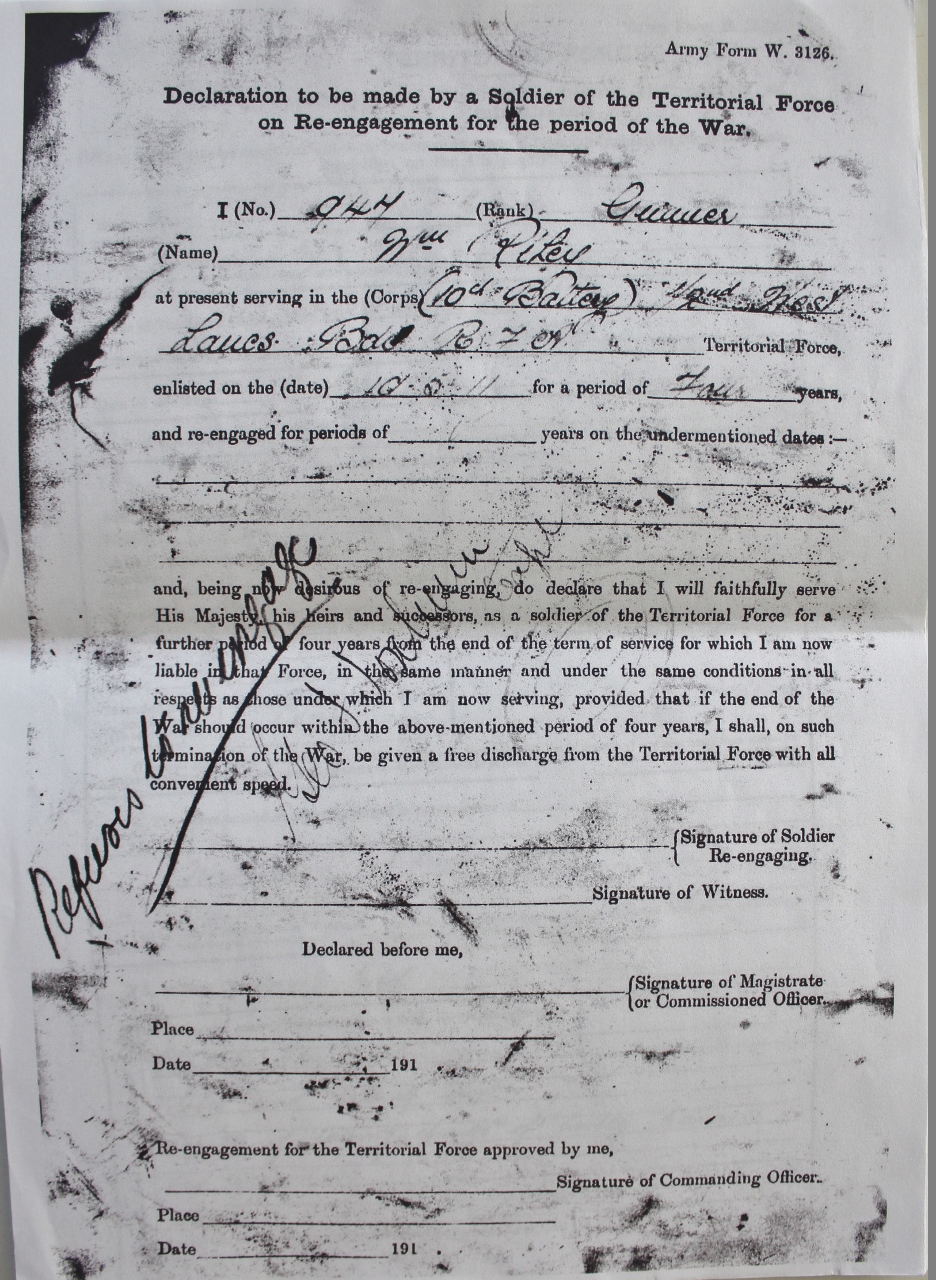 Army Form W. 3126.
Declaration to be made by a Soldier of the Territorial Force
on Re-engagement for the period of the War.
I (No.) 947 (Rank) Gunner
(Name) Wm Riley
at present serving in the (Corps) (10th Battery) 2nd West
Lancs Bde R F A Territorial Force,
enlisted on the (date) 10 5 11 for a period of Four years,
and re-engaged for periods of years on the undermentioned dates :—
and, being now desirous of re-engaging, do declare that I will faithfully serve
His Majesty, his heirs and successors, as a soldier of the Territorial Force for a
further period of four years from the end of the term of service for which I am now
liable in that Force, in the same manner and under the same conditions in all
respects as those under which I am now serving, provided that if the end of the
War should occur within the above-mentioned period of four years, I shall, on such
termination of the War, be given a free discharge from the Territorial Force with all
convenient speed.
Refuses to re engage
Signature of Soldier
Re-engaging.
Signature of Witness.
Declared before me,
Signature of Magistrate
or Commissioned Officer.
Place
Date 191 .
Re-engagement for the Territorial Force approved by me,
Signature of Commanding Officer.
Place
Date 191 .